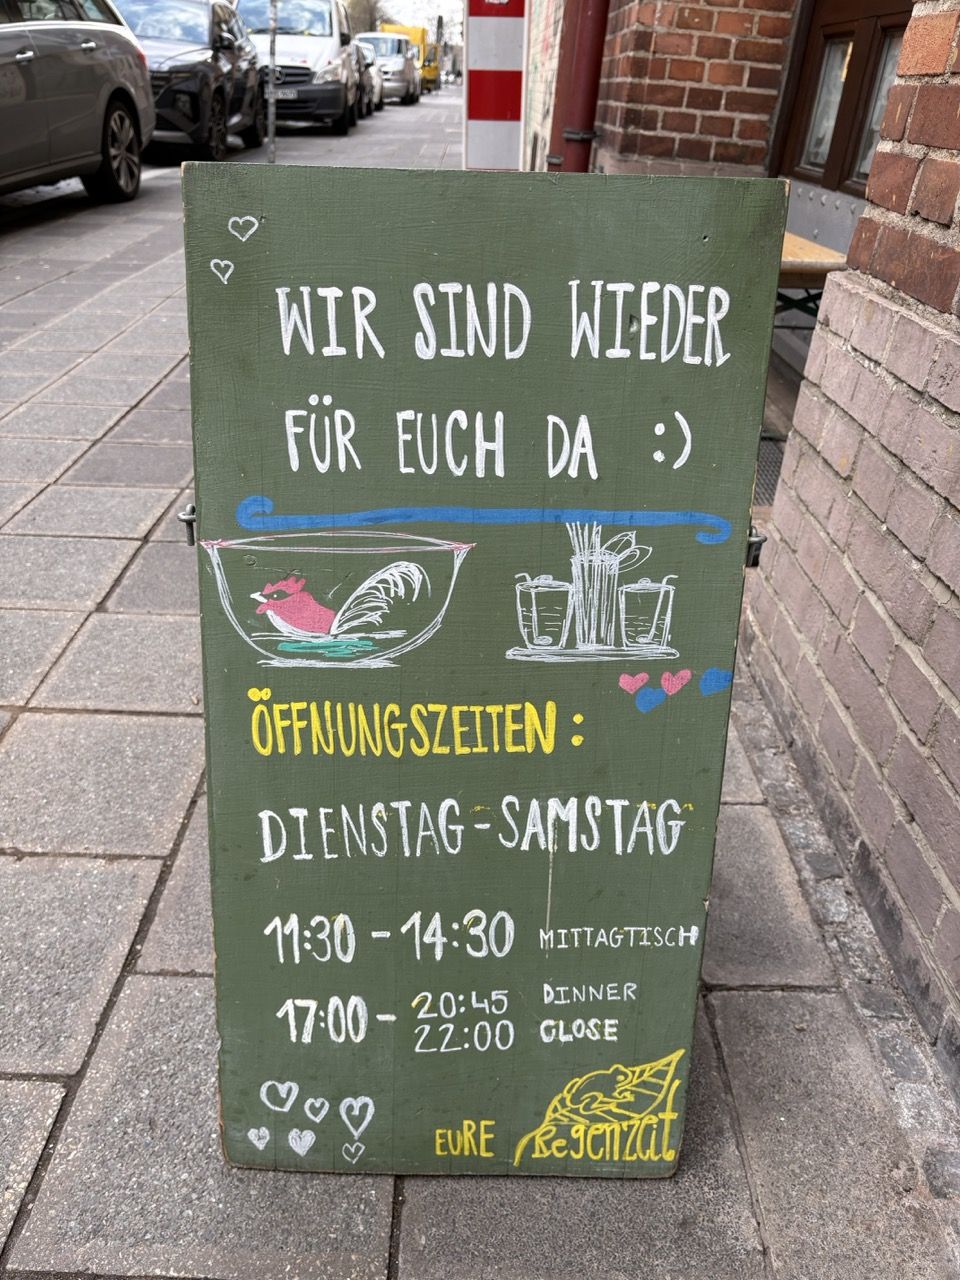 WIR SIND WIEDER
FÜR EUCH DA :)
ÖFFNUNGSZEITEN :
DIENSTAG - SAMSTAG
11:30 - 14:30 MITTAGTISCH
17:00 - 20:45 DINNER
22:00 CLOSE
EURE Regenzeit